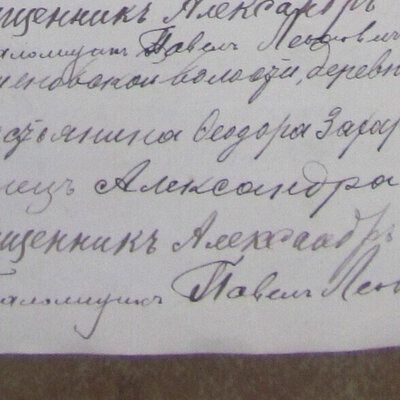 щенникъ Александръ
аломщикъ Павелъ Леон
еновской волости, дерев
стьянина Ѳеодора Захар
нецъ Александра
щенникъ Александръ
аломщикъ Павелъ Леон